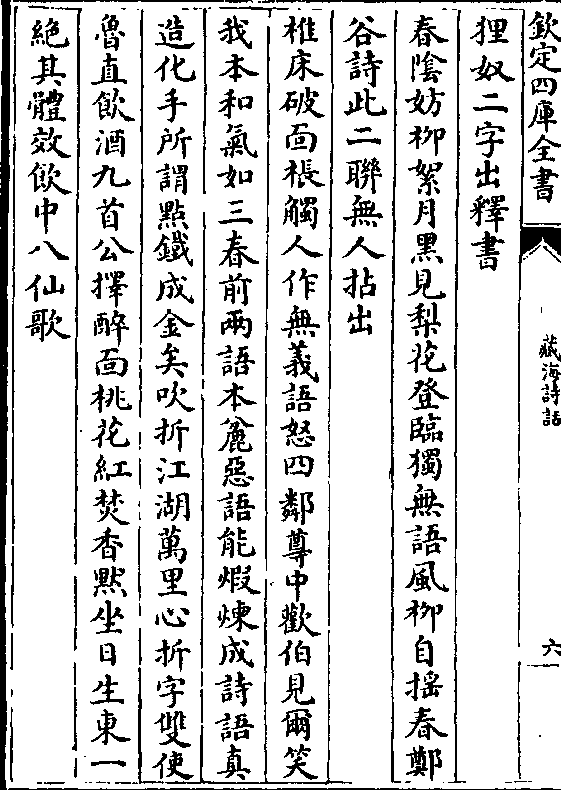 欽定四庫全書
藏海詩話
六
狸奴二字出釋書
春陰妨柳絮月黑見梨花登臨獨無語風柳自揺春鄭
谷詩此二聯無人拈出
椎床破面棖觸人作無義語怒四鄰尊中歡伯見爾笑
我本和氣如三春前兩語本麄惡語能煆煉成詩語真
造化手所謂點鐵成金矣吹折江湖萬里心折字雙使
魯直飲酒九首公擇醉面桃花紅焚香黙坐日生東一
絶其體效飲中八仙歌